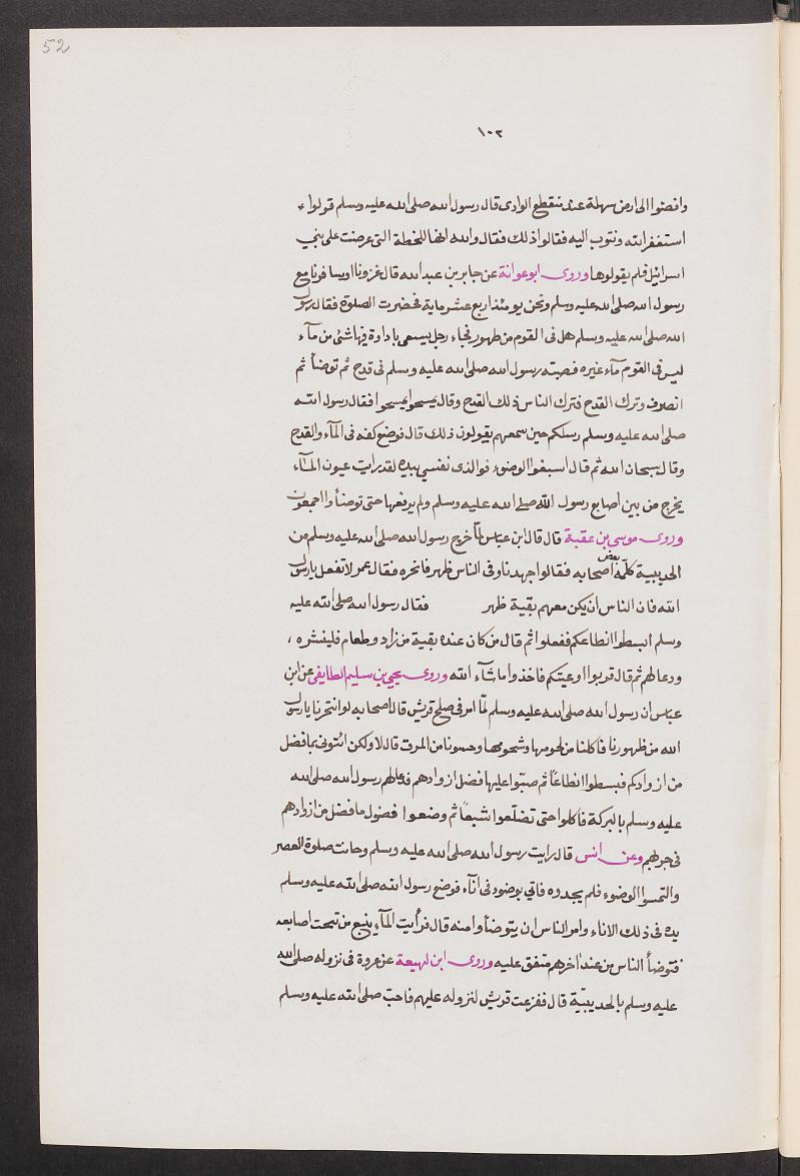 52
١٠٢
وافضوا الى ارض سهلة عند منقطع الوادى قال رسول الله صلى الله عليه وسلم قولوا
استغفر الله ونتوب اليه فقالوا ذلك فقال والله انها للخطة التى عرضت على بنى
اسرائيل فلم يقولوها وروى ابو عوانة عن جابر بن عبد الله قال غزونا او سافرنا مع
رسول الله صلى الله عليه وسلم ونحن يومئذ اربع عشر ماية فحضرت الصلوة فقال رسول
الله صلى الله عليه وسلم هل فى القوم من طهور فجاء رجل يسعى باداوة فيها شئ من مآء
ليس فى القوم مآء غيره فصبه رسول الله صلى الله عليه وسلم فى قدح ثم توضأ ثم
انصرف وترك القدح فترك الناس ذلك القدح وقال يمسحوا يمسحوا فقال رسول الله
صلى الله عليه وسلم رسلكم حين سمعهم يقولون ذلك قال فوضع كفه فى المآء والقدح
وقال سبحان الله ثم قال اسبغوا الوضوء فوالذى نفسى بيده لقد رايت عيون المآء
يخرج من بين اصابع رسول الله صلى الله عليه وسلم ولم يرفعها حتى توضأوا اجمعون
وروى موسى بن عقبة قال قال ابن عباس لمّا خرج رسول الله صلى الله عليه وسلم من
الحديبية كلّمه بعض اصحابه فقالوا جهدنا وفى الناس ظهر فانحره فقال عمر لا تفعل يا رسول
الله فان الناس ان يكن معهم بقية ظهر فقال رسول الله صلى الله عليه
وسلم ابسطوا انطاعكم ففعلوا ثم قال من كان عنده بقية من زاد وطعام فلينشره ،
ودعا لهم ثم قال قربوا اوعيتكم فاخذوا ما شآء الله وروى يحيى بن سليم الطايفى عن ابن
عبّاس ان رسول الله صلى الله عليه وسلم لمّا مر فى صلح قريش قال اصحابه لو انتحرنا يا رسول
الله من ظهورنا فاكلنا من لحومها وشحومها وحسونا من المرق قال لا ولكن ائتونى بما فضل
من ازوادكم فبسطوا انطاعًا ثم صبّوا عليها فضل ازوادهم فدعا لهم رسول الله صلى الله
عليه وسلم بالبركة فاكلوا حتى تضلّعوا شبعًا ثم وضعوا فضول ما فضل من ازوادهم
فى جربهم وعن انس قال رايت رسول الله صلى الله عليه وسلم وحانت صلوة العصر
والتمسوا الوضوء فلم يجدوه فاتي بوضوء فى انآء فوضع رسول الله صلى الله عليه وسلم
يده فى ذلك الاناء وامر الناس ان يتوضأوا منه قال فرأيت المآء ينبع من تحت اصابعه
فتوضأ الناس من عند اخرهم متفق عليه وروى ابن لهيعة عن عروة فى نزوله صلى الله
عليه وسلم بالحديبيّة قال ففزعت قريش لنزوله عليهم فاحبّ صلى الله عليه وسلم